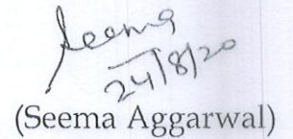 Seema
24/8/20
(Seema Aggarwal)